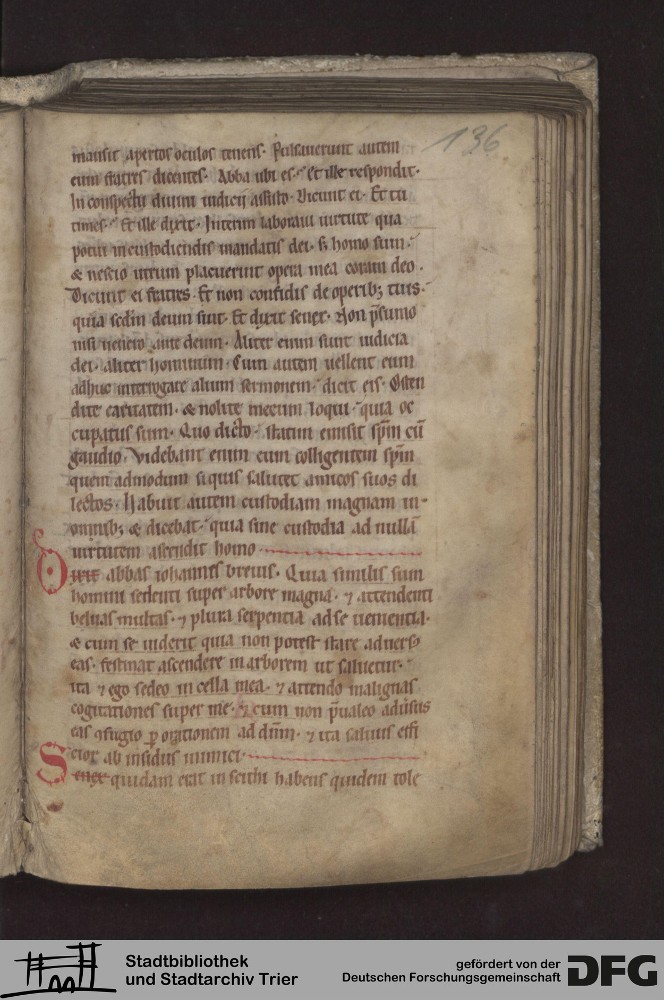 136
mansit apertos oculos tenens. Pulsauerunt autem
eum fratres dicentes. Abba ubi es. Et ille respondit.
In conspectu diuini iudicii assisto. Dicunt ei. Et tu
times. Et ille dixit. Interim laboraui uirtute qua
potui in custodiendis mandatis dei. sꝫ homo sum.
& nescio utrum placuerint opera mea coram deo.
Dicunt ei fratres. Et non confidis de operibꝫ tuis.
quia sedm deum sunt. Et dixit senex. Non p̄sumo
nisi uenero ante deum. Aliter enim sunt iudicia
dei. aliter hominum. Cum autem uellent eum
adhuc interrogare alium sermonem. dicit eis. Osten
dite caritatem. & nolite mecum loqui. quia oc
cupatus sum. Quo dicto. statim emisit sp̄m cū
gaudio. Videbant enim eum colligentem sp̄m
quem admodum siquis salutet amicos suos di
lectos. Habuit autem custodiam magnam in
omnibꝫ & dicebat. quia sine custodia ad nullā
uirtutem ascendit homo
Dixit abbas iohannes breuis. Quia similis sum
homini sedenti super arbore magna. ⁊ attendenti
beluas multas. ⁊ plura serpentia ad se uenientia.
& cum se uiderit quia non potest stare aduersꝰ
eas. festinat ascendere in arborem ut saluetur.
ita ⁊ ego sedeo in cella mea. ⁊ attendo malignas
cogitationes super me. ⁊ cum non p̄ualeo adūsus
eas cōfugio ꝑ orationem ad dn̄m. ⁊ ita saluus effi
cior ab insidiis inimici.
Senex quidam erat in scithi habens quidem tole
Stadtbibliothek
und Stadtarchiv Trier
gefördert von der
Deutschen Forschungsgemeinschaft
DFG